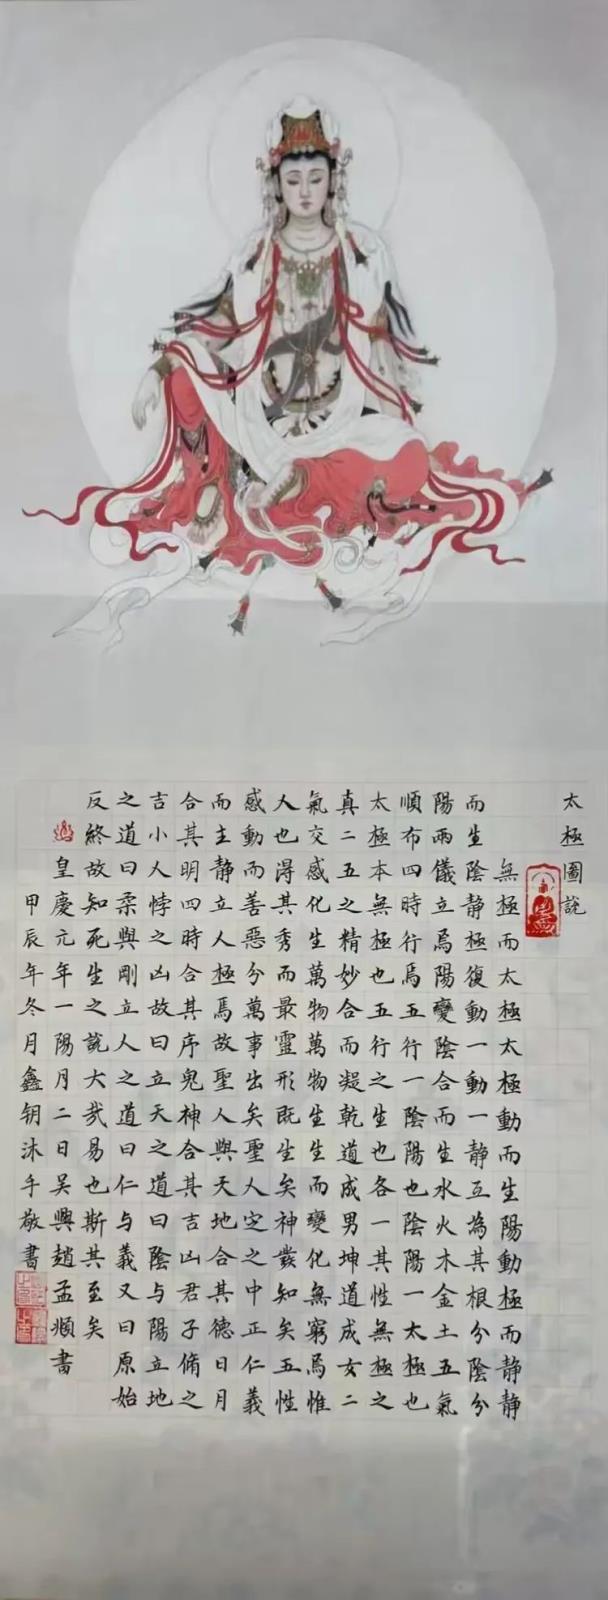 太極圖說
無極而太極太極動而生陽動極而靜靜
而生陰靜極復動一動一靜互為其根分陰分
陽兩儀立焉陽變陰合而生水火木金土五氣
順布四時行焉五行一陰陽也陰陽一太極也
太極本無極也五行之生也各一其性無極之
真二五之精妙合而凝乾道成男坤道成女二
氣交感化生萬物萬物生生而變化無窮焉惟
人也淂其秀而最靈形既生矣神發知矣五性
感動而善惡分萬事出矣聖人定之中正仁義
而主靜立人極焉故聖人與天地合其德日月
合其明四時合其序鬼神合其吉凶君子脩之
吉小人悖之凶故曰立天之道曰陰与陽立地
之道曰柔與剛立人之道曰仁与義又曰原始
反終故知死生之說大哉易也斯其至矣
皇慶元年一陽月二日吳興趙孟頫書
甲辰年冬月鑫钥沐手敬書